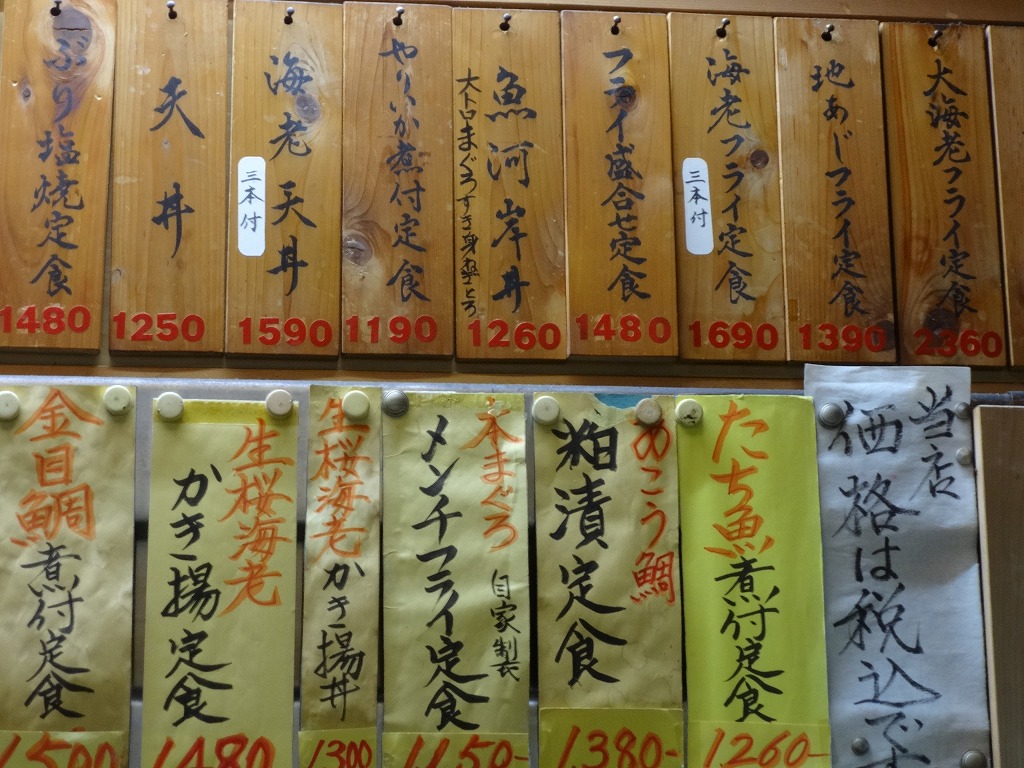 大海老フライ定食
2360
地あじフライ定食
1390
海老フライ定食
三本付
1690
フライ盛合せ定食
1480
魚河岸丼
大トロまぐろすき身ねぎとろ
1260
やりいか煮付定食
1190
海老天丼
三本付
1590
天丼
1250
ぶり塩焼定食
1480
当店
価格は税込です
たち魚煮付定食
1260-
あこう鯛
粕漬定食
1380-
本まぐろ
自家製
メンチフライ定食
1150-
生桜海老かき揚丼
1300
生桜海老
かき揚定食
1480
金目鯛煮付定食
1500